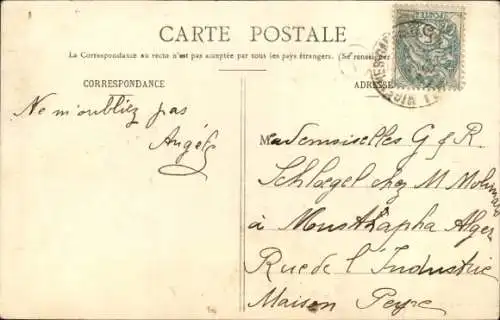 CARTE POSTALE
La Correspondance au recto n'est pas acceptée par tous les pays étrangers. (Se renseigner
CORRESPONDANCE
ADRESSE
Ne m'oubliez pas
Angèle
Mademoiselles G & R
Schlœgel chez M
à Mustapha Alger
Rue de l'Industrie
Maison Peyre